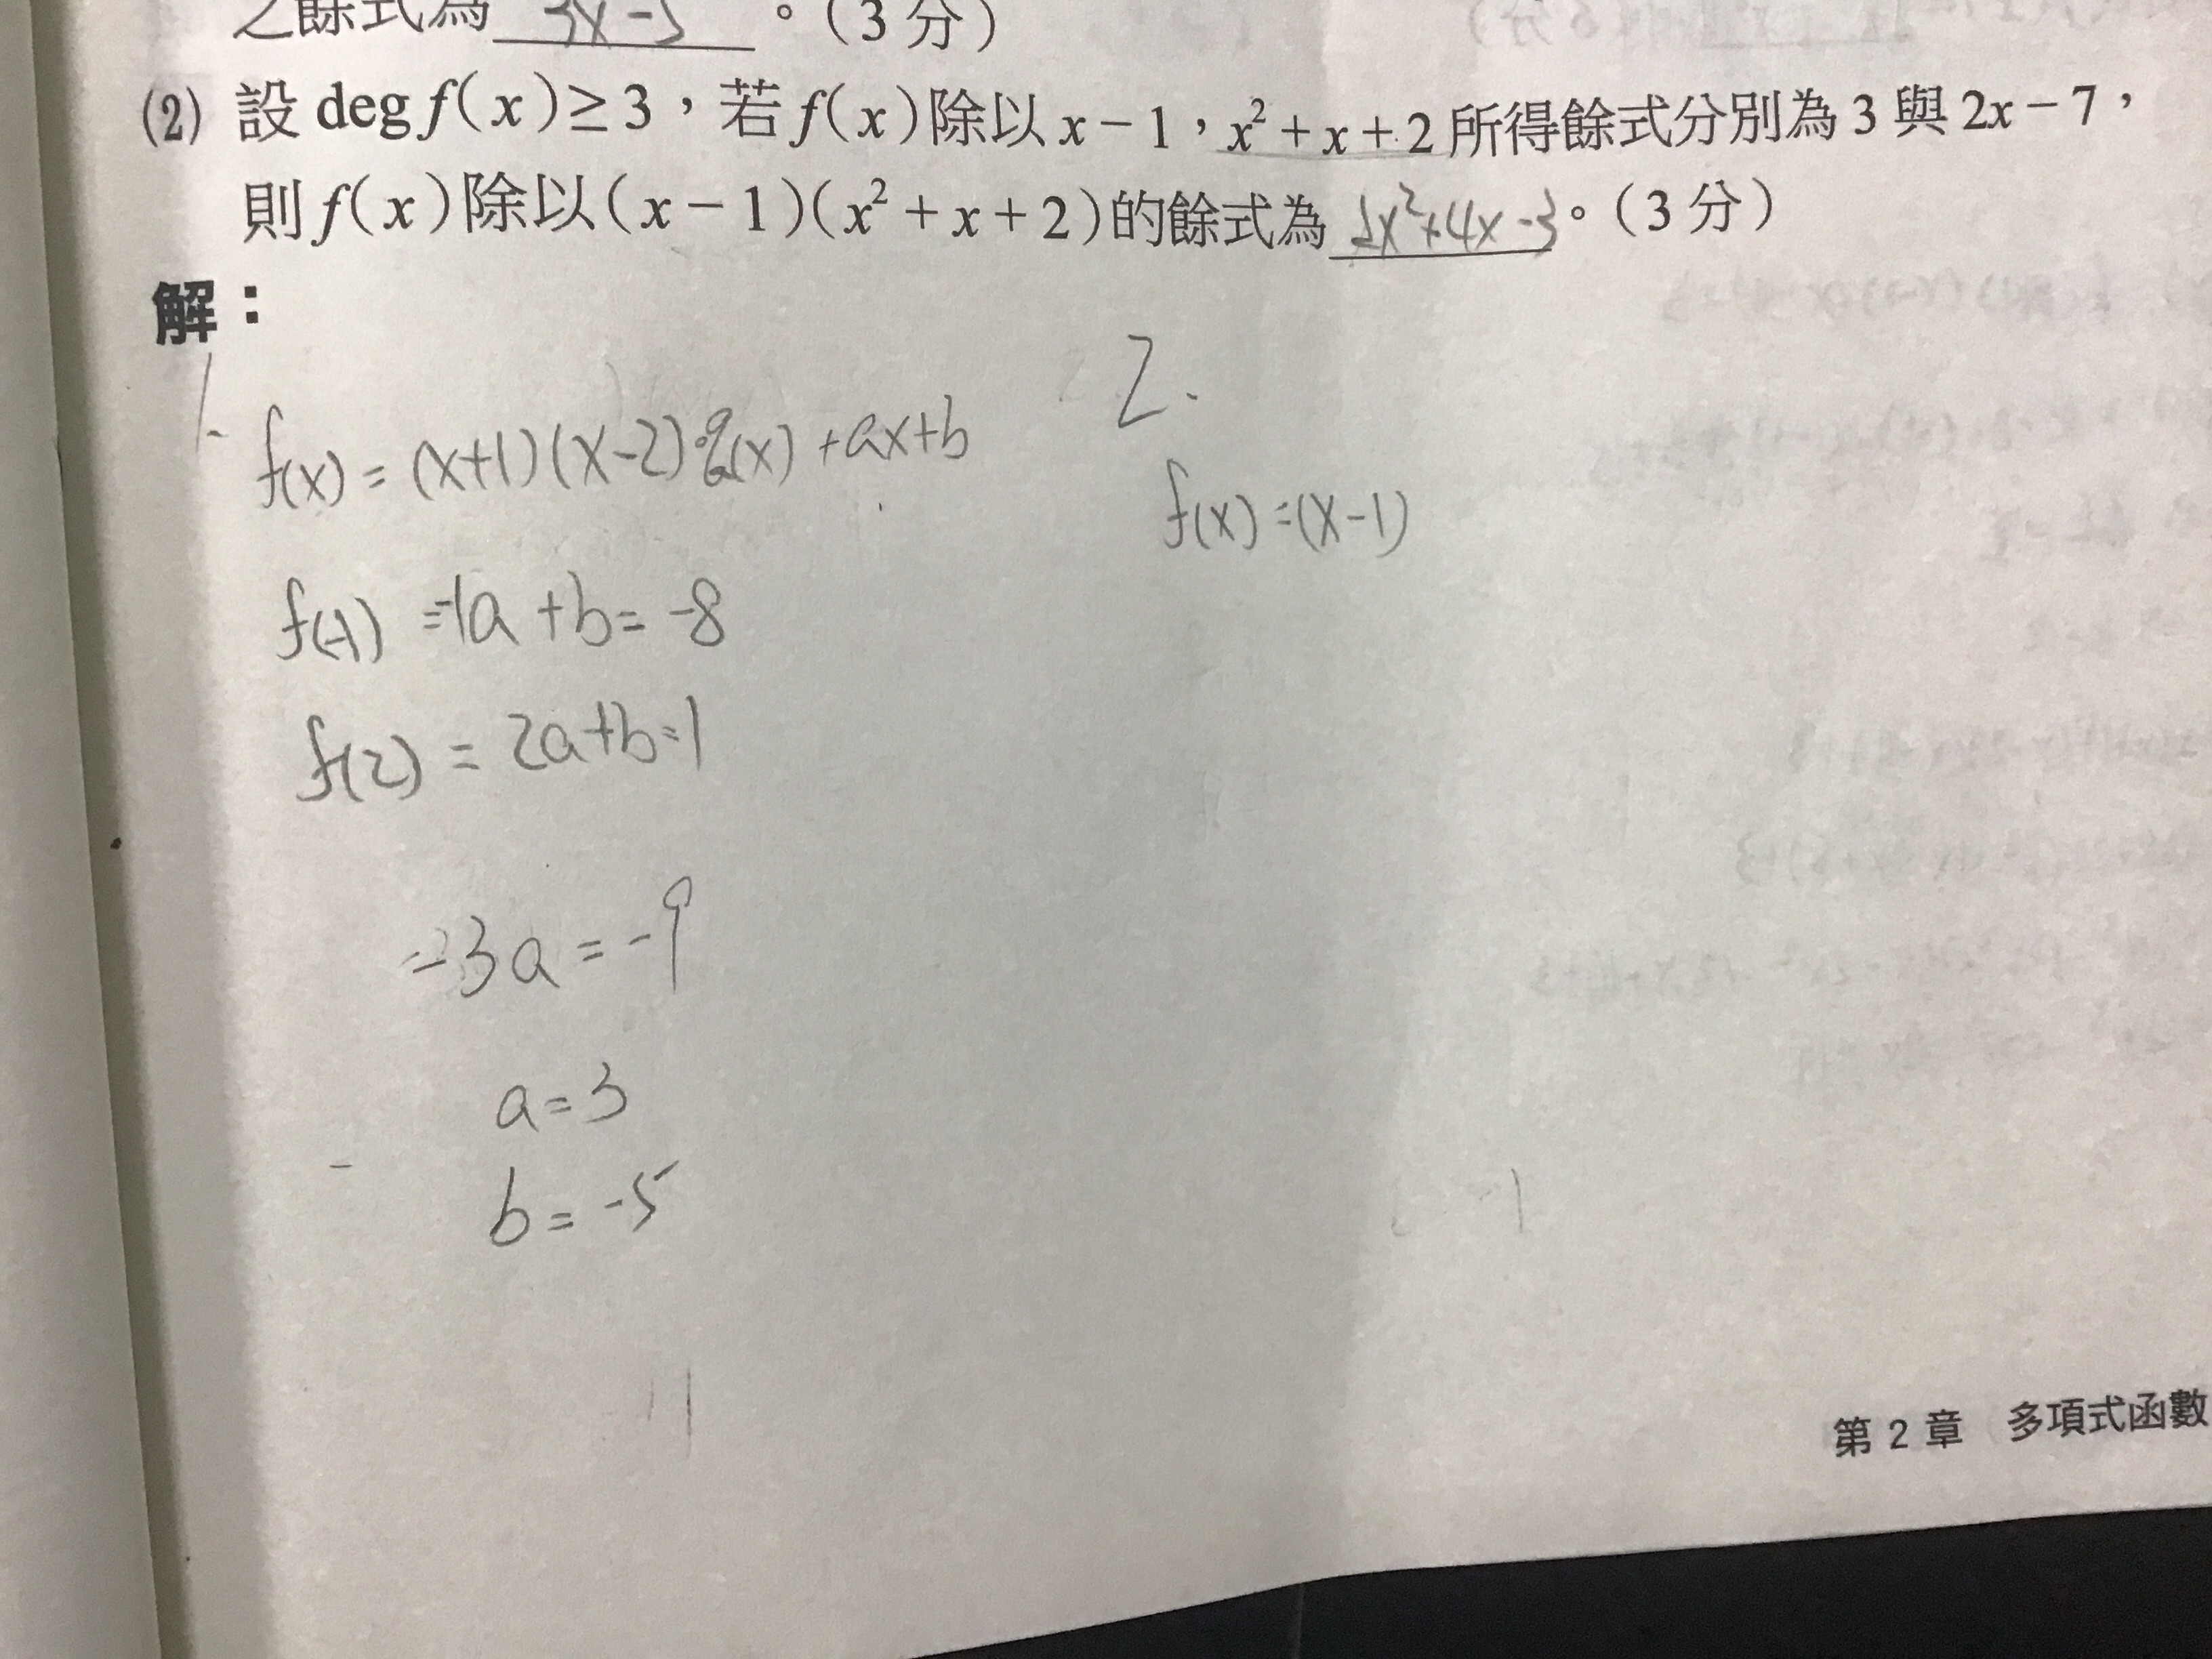 之餘式為 3x-5 。(3分)
(2) 設 deg f(x)≥3，若 f(x) 除以 x-1，x²+x+2 所得餘式分別為 3 與 2x-7，
則 f(x) 除以 (x-1)(x²+x+2) 的餘式為 2x²+4x-3。(3分)
解：
1. f(x) = (x+1)(x-2)·q(x) +ax+b
f(-1) = -1a +b = -8
f(2) = 2a+b=1
= -3a = -9
a=3
b= -5
2.
f(x) =(x-1)
第 2 章 多項式函數